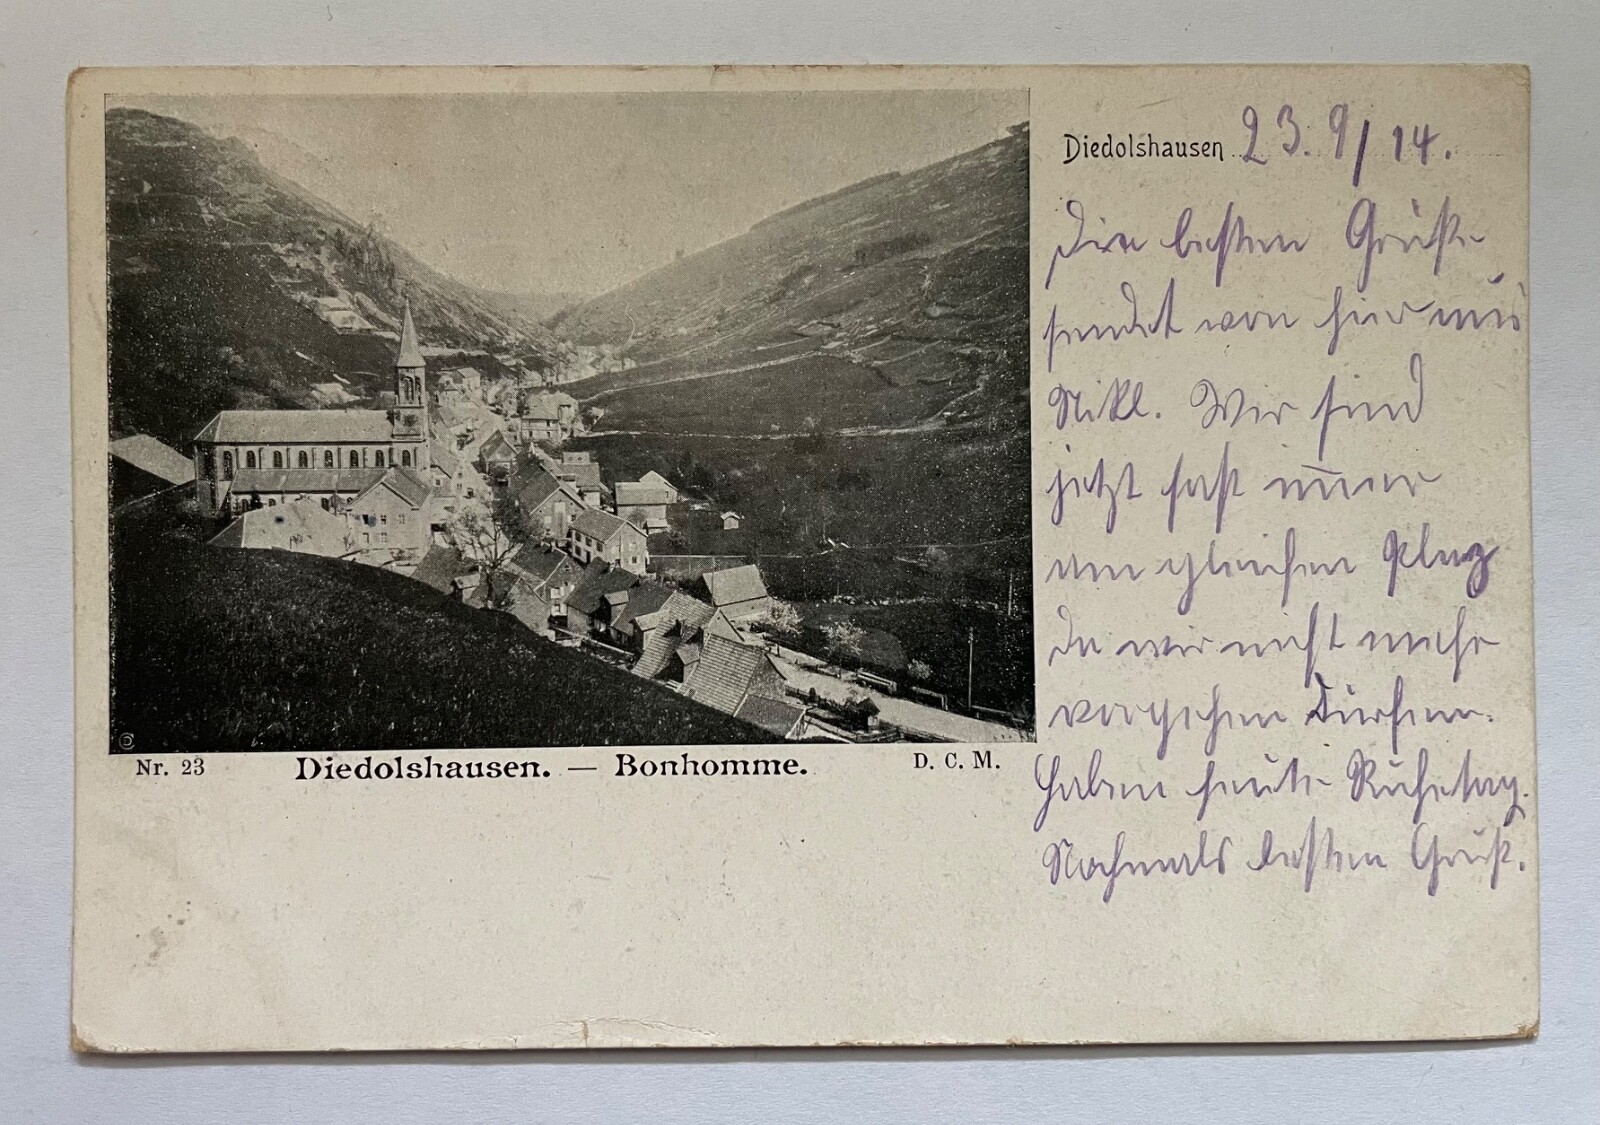 Diedolshausen 23. 9/14.
Die besten Grüße
sendet von hier aus
Nikl. Wir sind
jetzt fast im̅er
am gleichen Plaz
da wir nicht mehr
vorgehen dürfen.
Haben heute Ruhetag.
Nochmals besten Gruß.
Nr. 23 Diedolshausen. — Bonhomme. D. C. M.